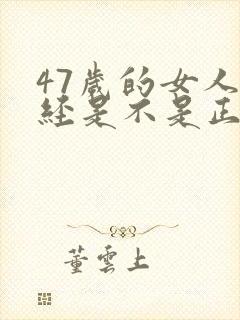 47歲的女人
經是不是正
董雲上